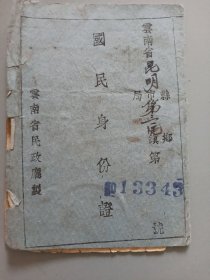 雲南省昆明縣市局
鄉鎮
第
號
13343
國民身份證
雲南省民政廳製